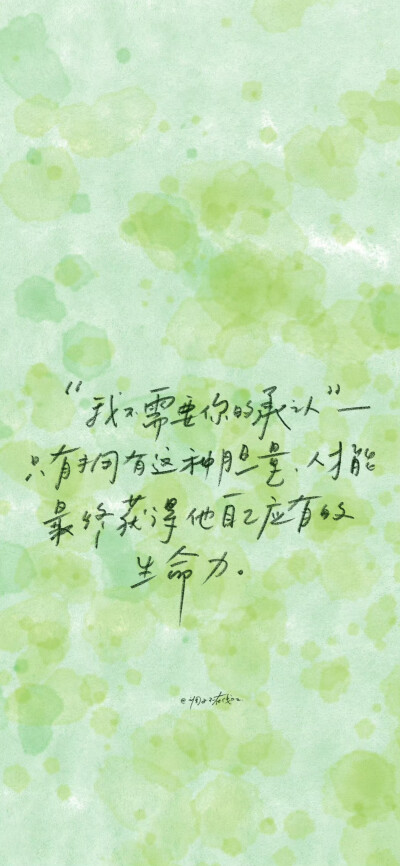 “我不需要你的承认”—
只有拥有这种胆量、人才能
最终获得他自己应有的
生命力。